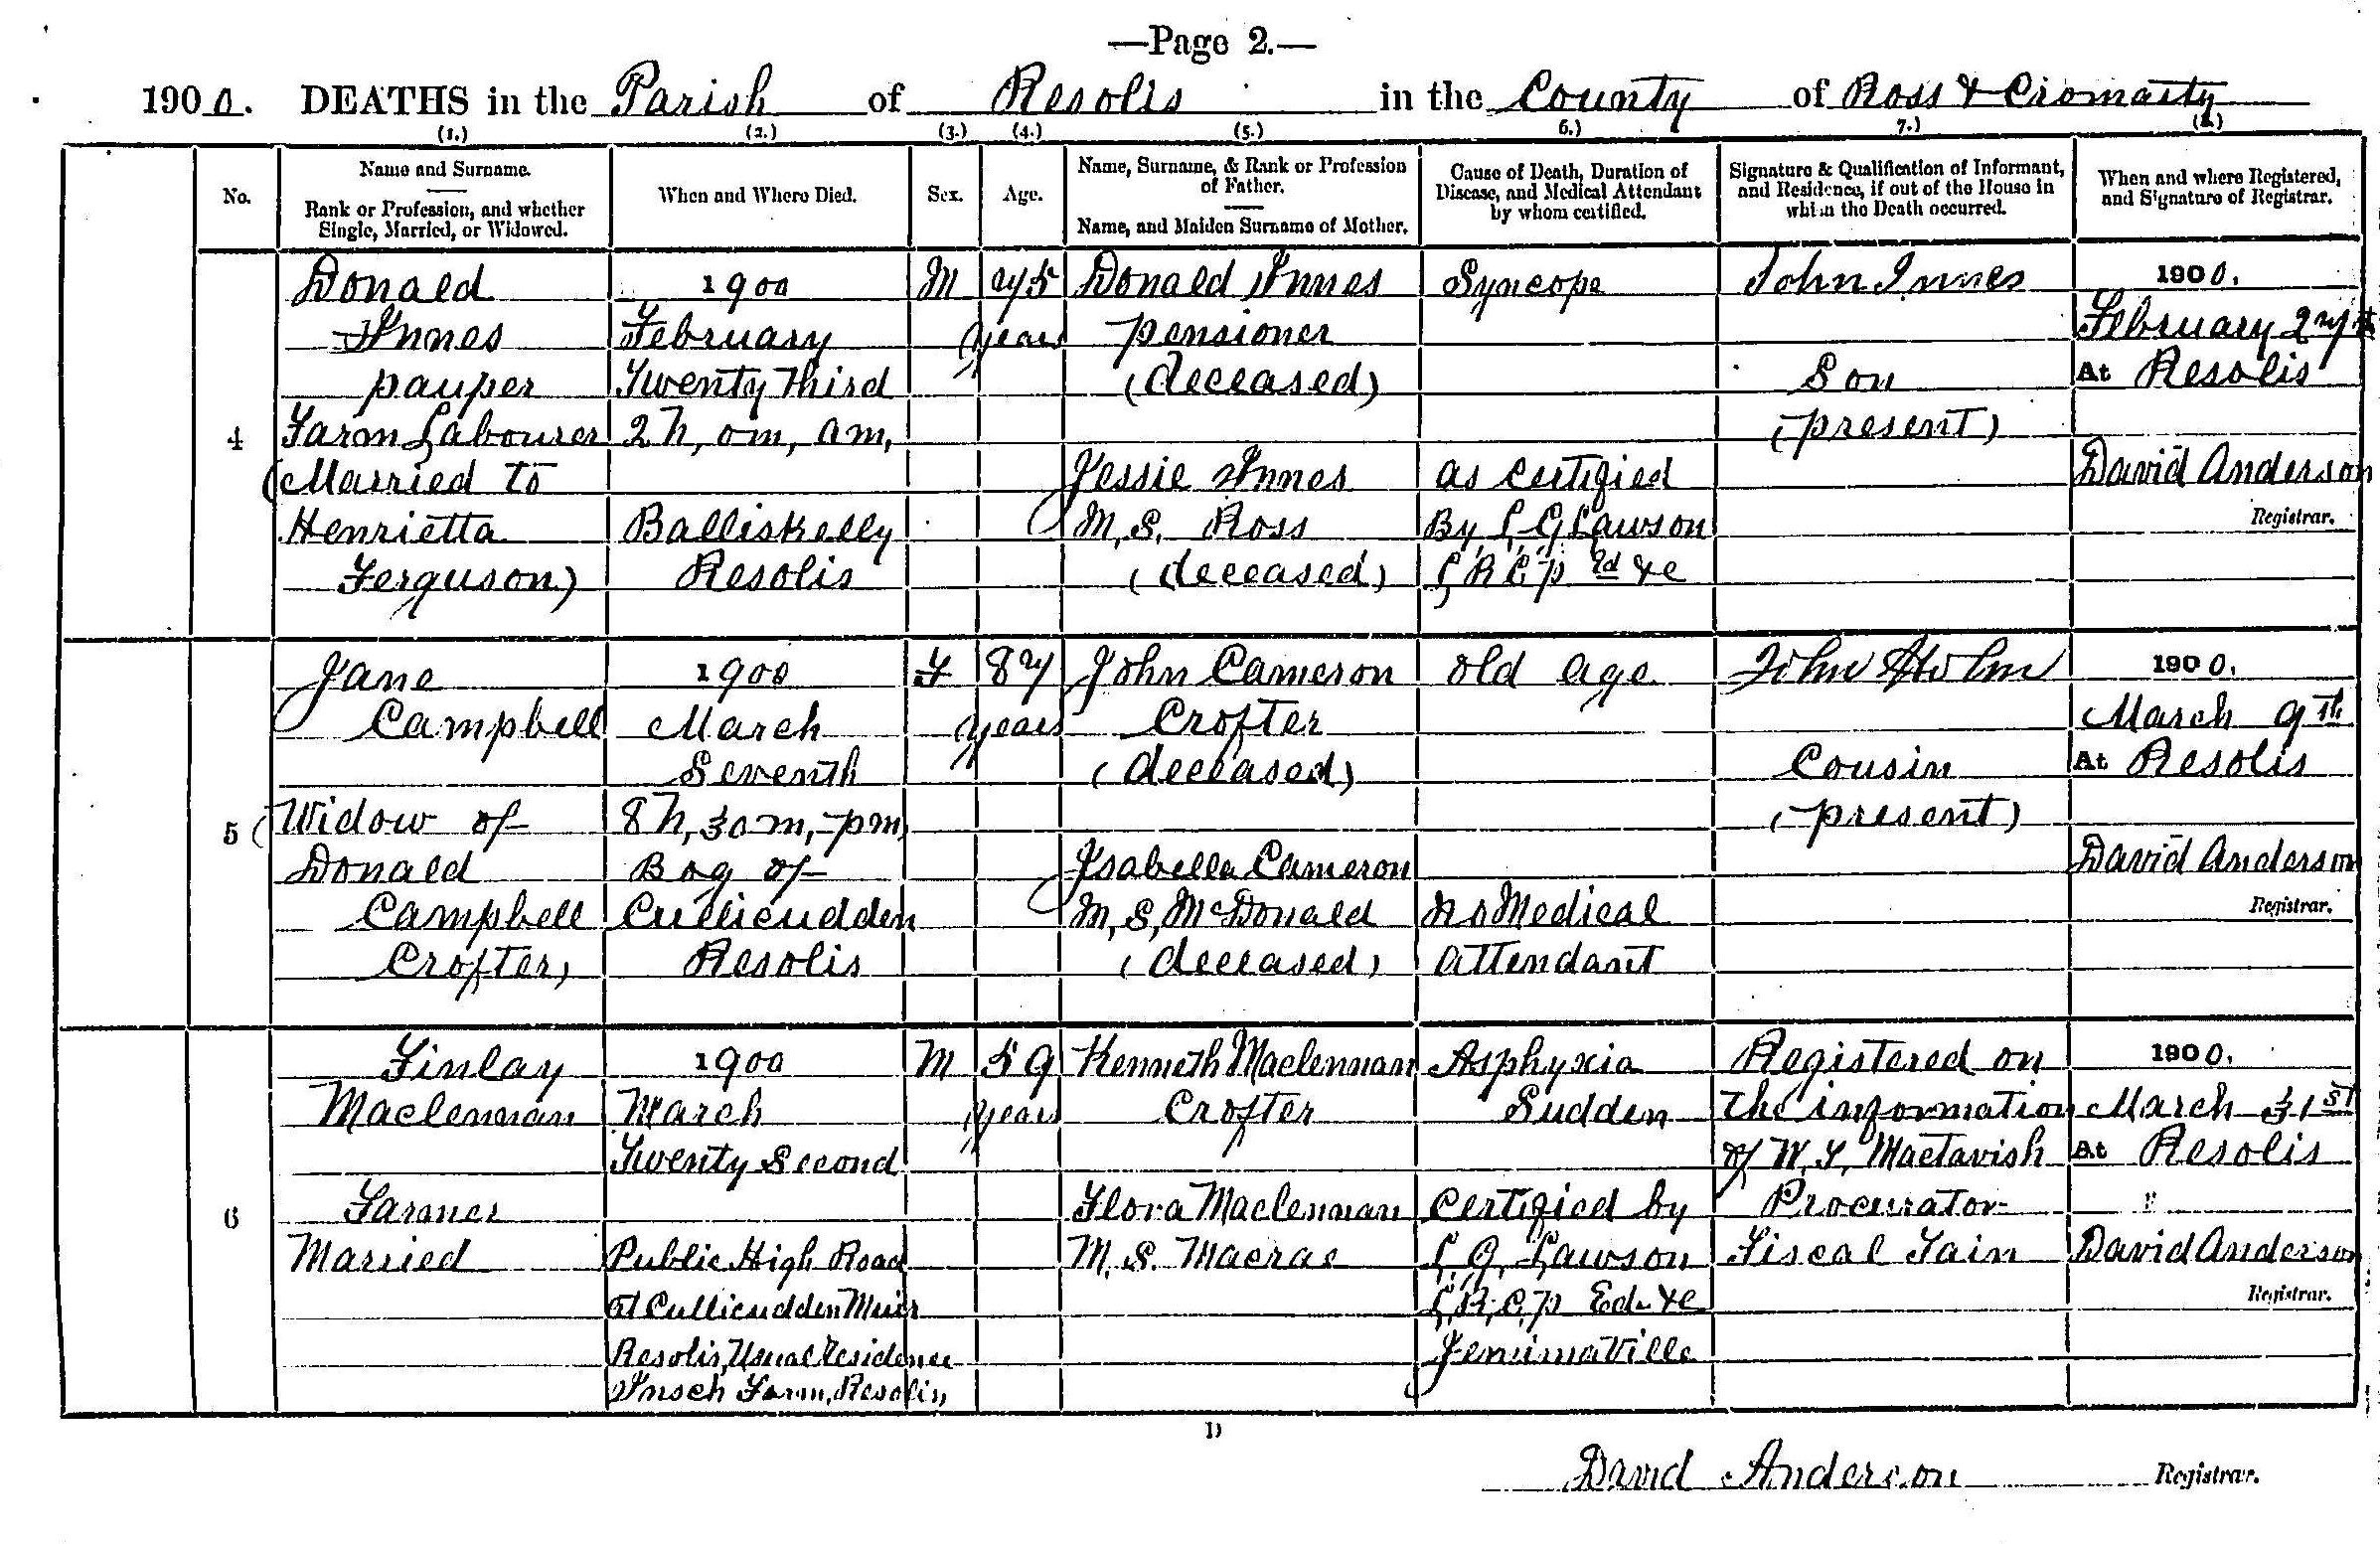 —Page 2.—
1900. DEATHS in the Parish of Resolis in the County of Ross & Cromarty
(1.) (2.) (3.) (4.) (5.) 6.) 7.) (8.)
No.
Name and Surname.
Rank or Profession, and whether
Single, Married, or Widowed.
When and Where Died.
Sex.
Age.
Name, Surname, & Rank or Profession
of Father.
Name, and Maiden Surname of Mother.
Cause of Death, Duration of
Disease, and Medical Attendant
by whom certified.
Signature & Qualification of Informant,
and Residence, if out of the House in
which the Death occurred.
When and where Registered,
and Signature of Registrar.
4
Donald
Innes
pauper
Farm Labourer
(Married to
Henrietta
Ferguson)
1900
February
Twenty Third
2h, 0m, am,
Balliskelly
Resolis
M
75
years
Donald Innes
pensioner
(deceased)
Jessie Innes
M, S, Ross
(deceased)
Syncope
as certified
By L, G, Lawson
L, R, C, P Ed &c
John Innes
Son
(present)
1900.
February 27th
At Resolis
David Anderson
Registrar.
5
Jane
Campbell
(Widow of
Donald
Campbell
Crofter)
1900
March
Seventh
8h, 30m, pm,
Bog of
Cullicudden
Resolis
F
87
years
John Cameron
Crofter
(deceased)
Isabella Cameron
M, S, McDonald
(deceased)
Old age
No Medical
attendant
John Holm
Cousin
(present)
1900.
March 9th
At Resolis
David Anderson
Registrar.
6
Finlay
Maclennan
Farmer
Married
1900
March
Twenty Second
Public High Road
at Cullicudden Muir
Resolis, Usual Residence
Insch Farm, Resolis,
M
59
years
Kenneth Maclennan
Crofter
Flora Maclennan
M. S. Macrae
Asphyxia
Sudden
Certified by
L. G. Lawson
L, R, C, P Ed &c
Jemimaville
Registered on
the information
of W, J, Mactavish
Procurator
Fiscal Tain
1900.
March 31st
At Resolis
"
David Anderson
Registrar.
D
David Anderson Registrar.